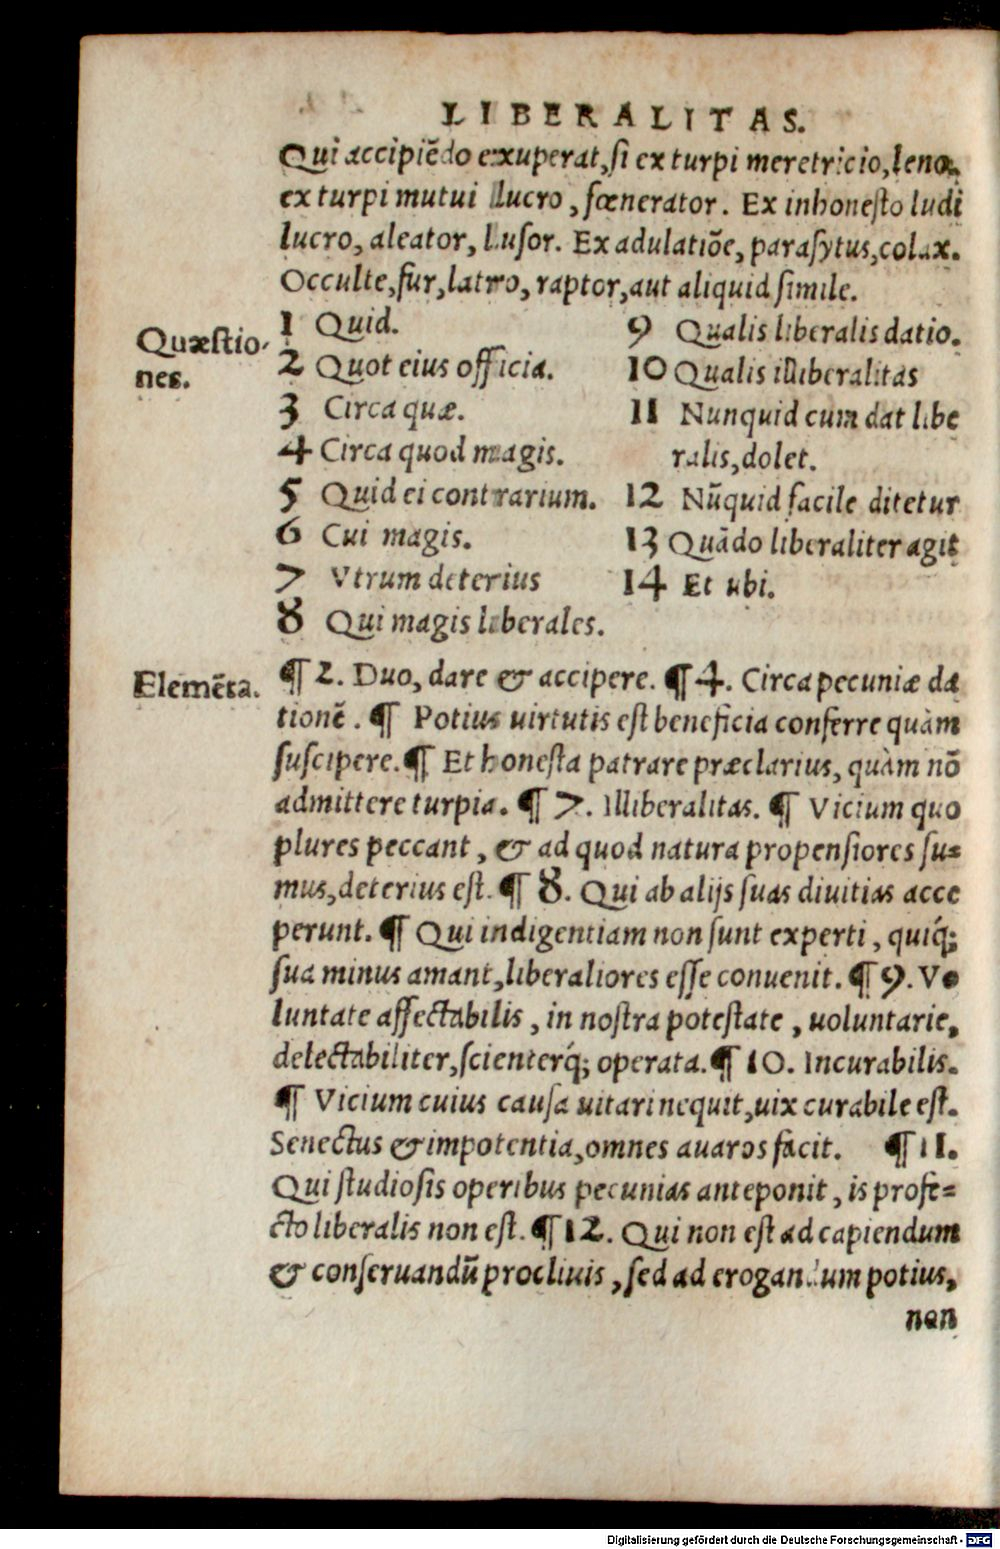 LIBERALITAS.
Qui accipiēdo exuperat, si ex turpi meretricio, leno.
ex turpi mutui lucro, fœnerator. Ex inhonesto ludi
lucro, aleator, Lusor. Ex adulatiōe, parasytus, colax.
Occulte, fur, latro, raptor, aut aliquid simile.
Quæstio-
nes.
1 Quid.
2 Quot eius officia.
3 Circa quæ.
4 Circa quod magis.
5 Quid ei contrarium.
6 Cui magis.
7 Vtrum deterius
8 Qui magis liberales.
9 Qualis liberalis datio.
10 Qualis illiberalitas
11 Nunquid cum dat libe
ralis, dolet.
12 Nūquid facile ditetur
13 Quādo liberaliter agit
14 Et ubi.
Elemēta.
¶ 2. Duo, dare & accipere. ¶ 4. Circa pecuniæ da
tionē. ¶ Potius uirtutis est beneficia conferre quàm
suscipere. ¶ Et honesta patrare præclarius, quàm nō
admittere turpia. ¶ 7. Illiberalitas. ¶ Vicium quo
plures peccant, & ad quod natura propensiores su-
mus, deterius est. ¶ 8. Qui ab alijs suas diuitias acce
perunt. ¶ Qui indigentiam non sunt experti, quiq́;
sua minus amant, liberaliores esse conuenit. ¶ 9. Vo
luntate affectabilis, in nostra potestate, uoluntarie,
delectabiliter, scienterq́; operata. ¶ 10. Incurabilis.
¶ Vicium cuius causa uitari nequit, uix curabile est.
Senectus & impotentia, omnes auaros facit. ¶ 11.
Qui studiosis operibus pecunias anteponit, is profe-
cto liberalis non est. ¶ 12. Qui non est ad capiendum
& conseruandū procliuis, sed ad erogandum potius,
non
Digitalisierung gefördert durch die Deutsche Forschungsgemeinschaft - DFG